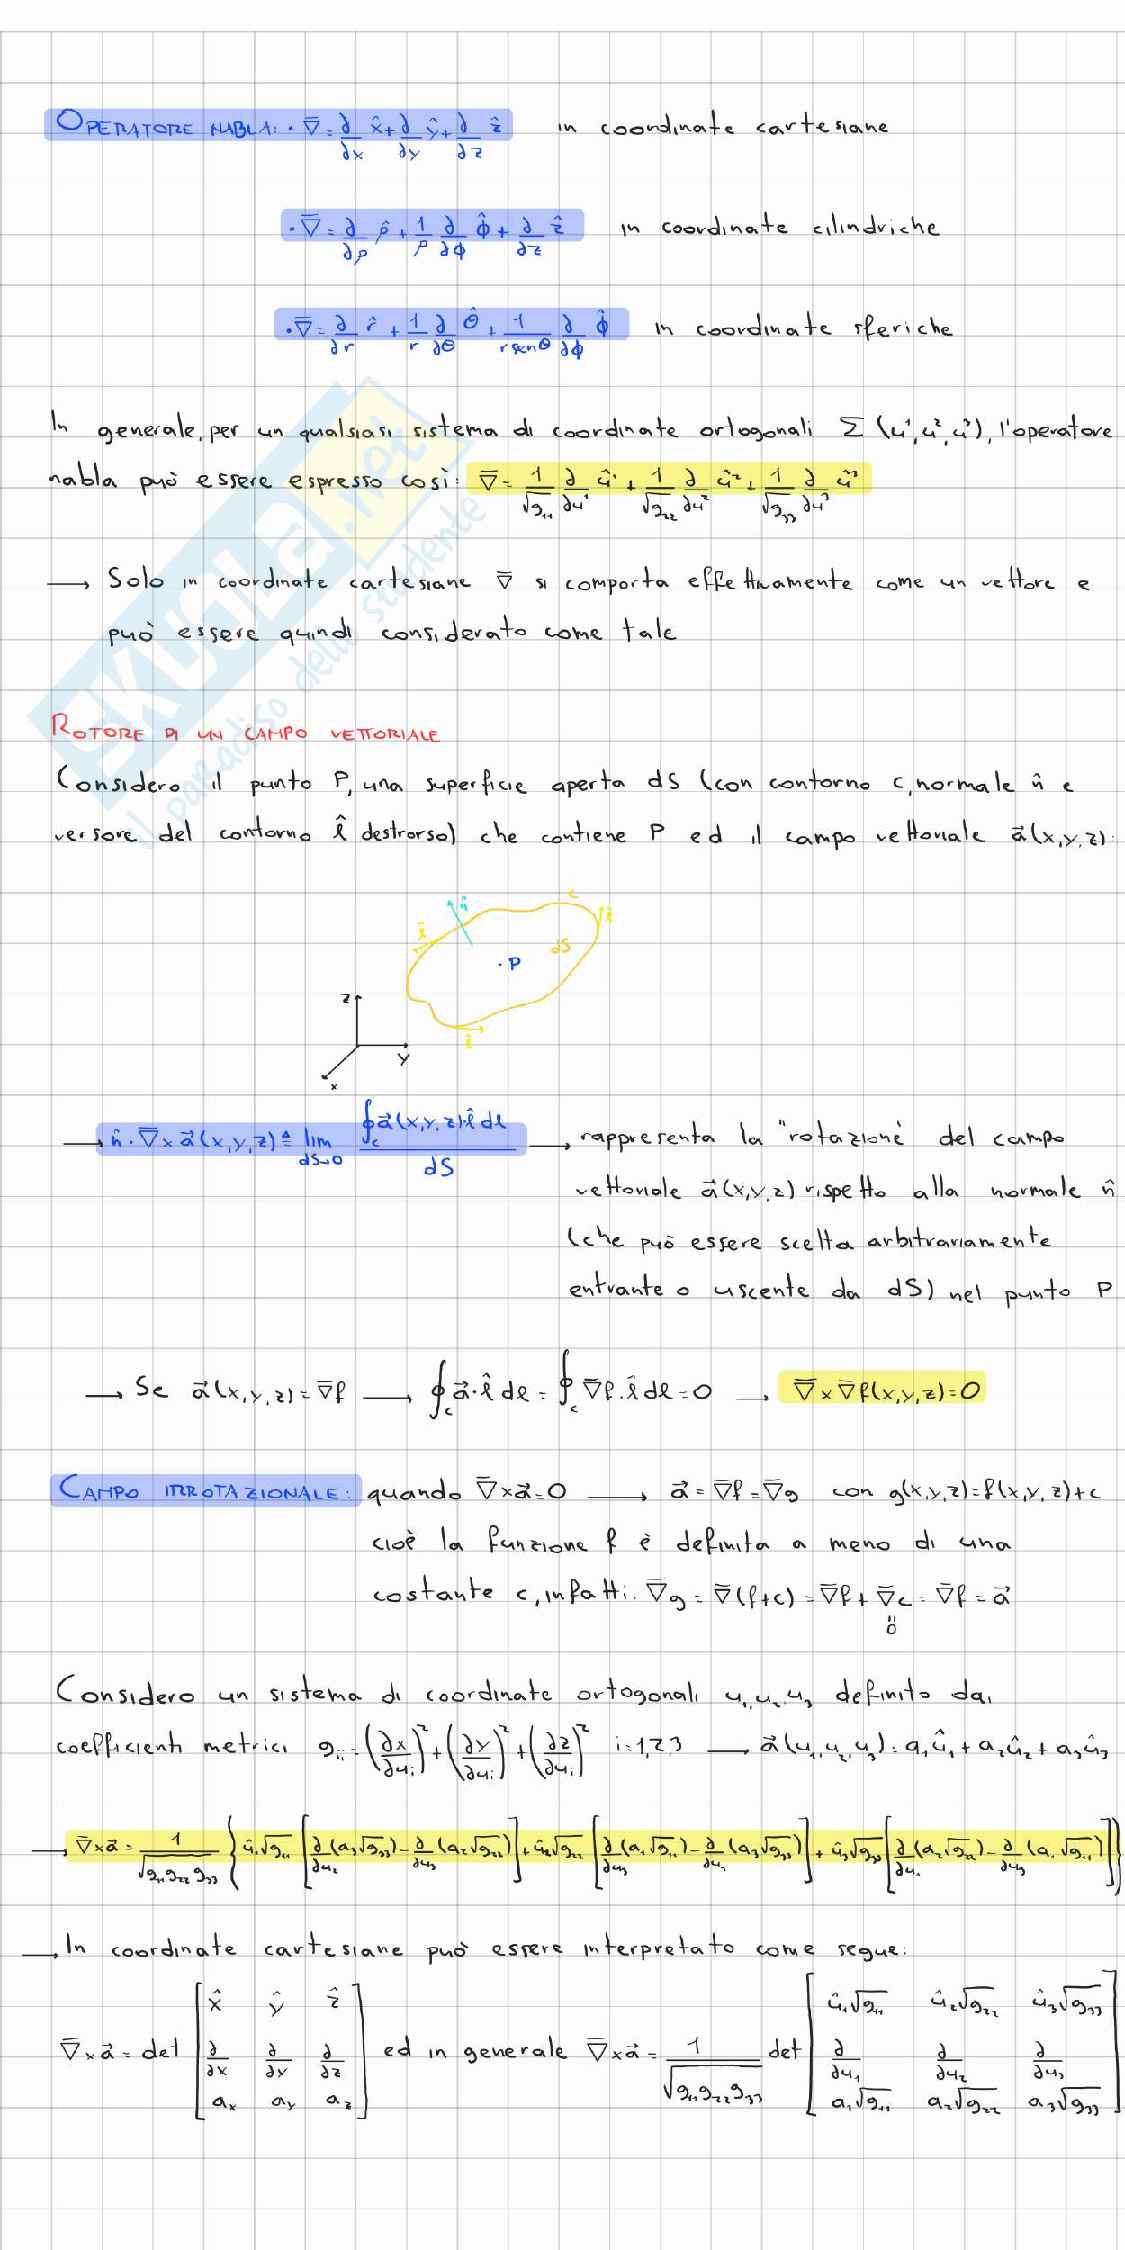 OPERATORE NABLA: · ∇̄ = ∂/∂x x̂ + ∂/∂y ŷ + ∂/∂z ẑ in coordinate cartesiane
· ∇̄ = ∂/∂ρ ρ̂ + 1/ρ ∂/∂ϕ ϕ̂ + ∂/∂z ẑ in coordinate cilindriche
· ∇̄ = ∂/∂r r̂ + 1/r ∂/∂θ θ̂ + 1/(r senθ) ∂/∂ϕ ϕ̂ in coordinate sferiche
In generale, per un qualsiasi sistema di coordinate ortogonali Σ (u¹, u², u³), l'operatore
nabla può essere espresso così: ∇̄ = 1/√g₁₁ ∂/∂u¹ û¹ + 1/√g₂₂ ∂/∂u² û² + 1/√g₃₃ ∂/∂u³ û³
→ Solo in coordinate cartesiane ∇̄ si comporta effettivamente come un vettore e
può essere quindi considerato come tale
SKUOLA.net
il paradiso dello studente
ROTORE DI UN CAMPO VETTORIALE
Considero il punto P, una superficie aperta dS (con contorno c, normale n̂ e
versore del contorno l̂ destrorso) che contiene P ed il campo vettoriale a⃗(x,y,z):
n̂ c l̂
l̂ dS
· P
z
l̂
y
x
→ n̂ · ∇̄ x a⃗(x,y,z) ≜ lim dS→0 ∮c a⃗(x,y,z)·l̂ dl / dS → rappresenta la "rotazione" del campo
vettoriale a⃗(x,y,z) rispetto alla normale n̂
(che può essere scelta arbitrariamente
entrante o uscente da dS) nel punto P
→ Se a⃗(x,y,z) = ∇̄f → ∮c a⃗·l̂ dl = ∮c ∇̄f·l̂ dl = 0 → ∇̄ x ∇̄f(x,y,z) = 0
CAMPO IRROTAZIONALE: quando ∇̄ x a⃗ = 0 → a⃗ = ∇̄f = ∇̄g con g(x,y,z) = f(x,y,z) + c
cioè la funzione f è definita a meno di una
costante c, infatti: ∇̄g = ∇̄(f+c) = ∇̄f + ∇̄c = ∇̄f = a⃗
"
0
Considero un sistema di coordinate ortogonali u₁, u₂, u₃ definito dai
coefficienti metrici gᵢᵢ = (∂x/∂uᵢ)² + (∂y/∂uᵢ)² + (∂z/∂uᵢ)² i = 1,2,3 → a⃗(u₁, u₂, u₃) = a₁û₁ + a₂û₂ + a₃û₃
→ ∇̄ x a⃗ = 1/√g₁₁g₂₂g₃₃ { û₁√g₁₁ [∂/∂u₂ (a₃√g₃₃) - ∂/∂u₃ (a₂√g₂₂)] + û₂√g₂₂ [∂/∂u₃ (a₁√g₁₁) - ∂/∂u₁ (a₃√g₃₃)] + û₃√g₃₃ [∂/∂u₁ (a₂√g₂₂) - ∂/∂u₃ (a₁√g₁₁)] }
→ In coordinate cartesiane può essere interpretato come segue:
∇̄ x a⃗ = det [x̂ ŷ ẑ; ∂/∂x ∂/∂y ∂/∂z; aₓ a_y a_z] ed in generale ∇̄ x a⃗ = 1/√g₁₁g₂₂g₃₃ det [û₁√g₁₁ û₂√g₂₂ û₃√g₃₃; ∂/∂u₁ ∂/∂u₂ ∂/∂u₃; a₁√g₁₁ a₂√g₂₂ a₃√g₃₃]